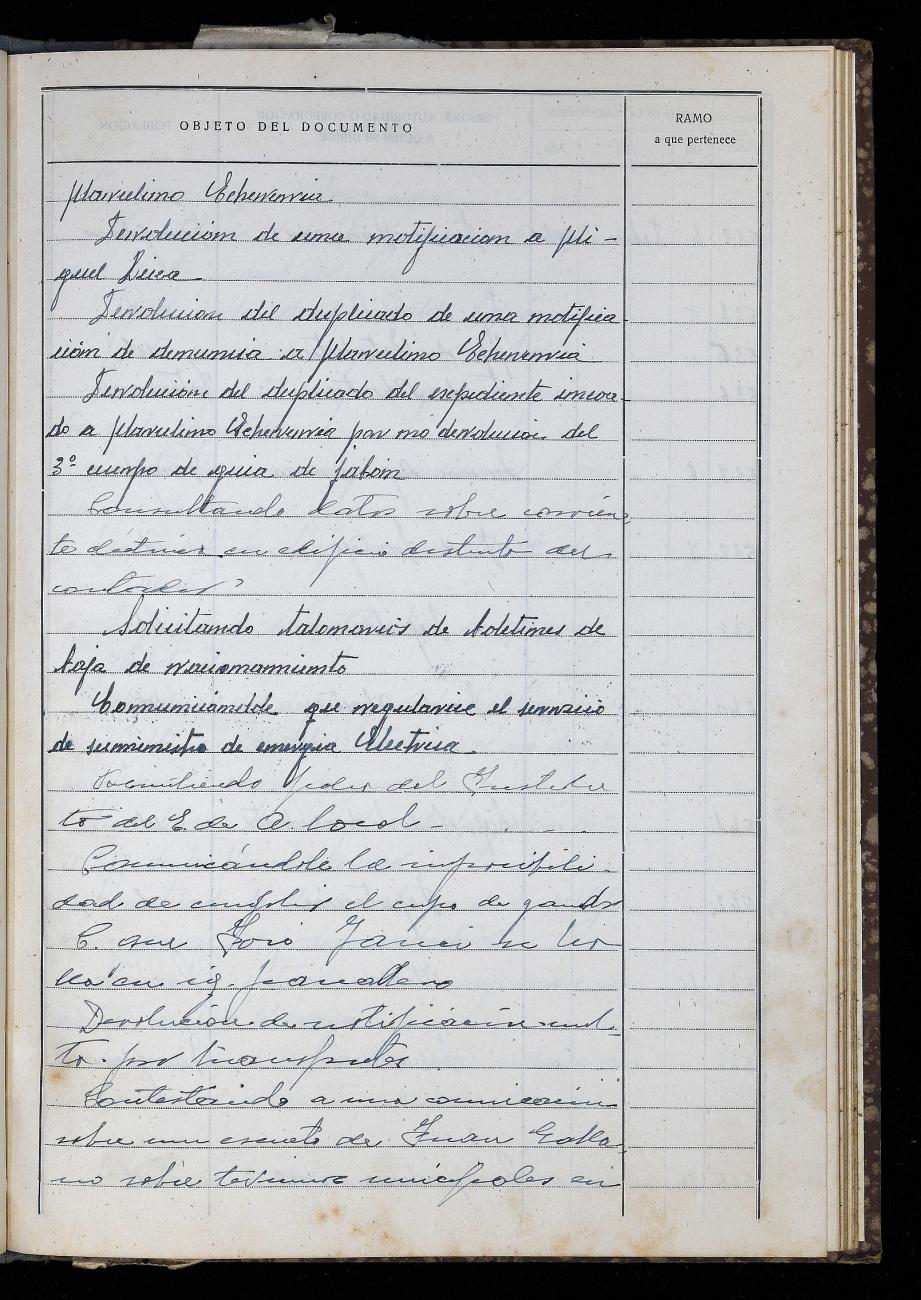 OBJETO DEL DOCUMENTO
RAMO
a que pertenece
Marcelino Echeverria
Devolucion de una notificacion a Mi-
guel
Devolucion del duplicado de una notifica
ción de denuncia a Marcelino Echeverria
Devolución del duplicado del expediente incoa-
do a Marcelino Echeverria por no devolucion del
3º cuerpo de guia de jabón
Consultando datos sobre corrien
te electrica en edificio distinto del
contador
Solicitando talonarios de boletines de
baja de racionamiento
Comunicandole que regularice el servicio
de suministro de energia Electrica
Remitiendo del Institu
to del E. de A. local -
Comunicándole la imposibili-
dad de cumplir el cupo de ganado
C. que
en ig.
Devolución de notificación mul
ta por transportes
Contestando a una comunicación
sobre un escrito de Juan
no sobre terminos municipales en